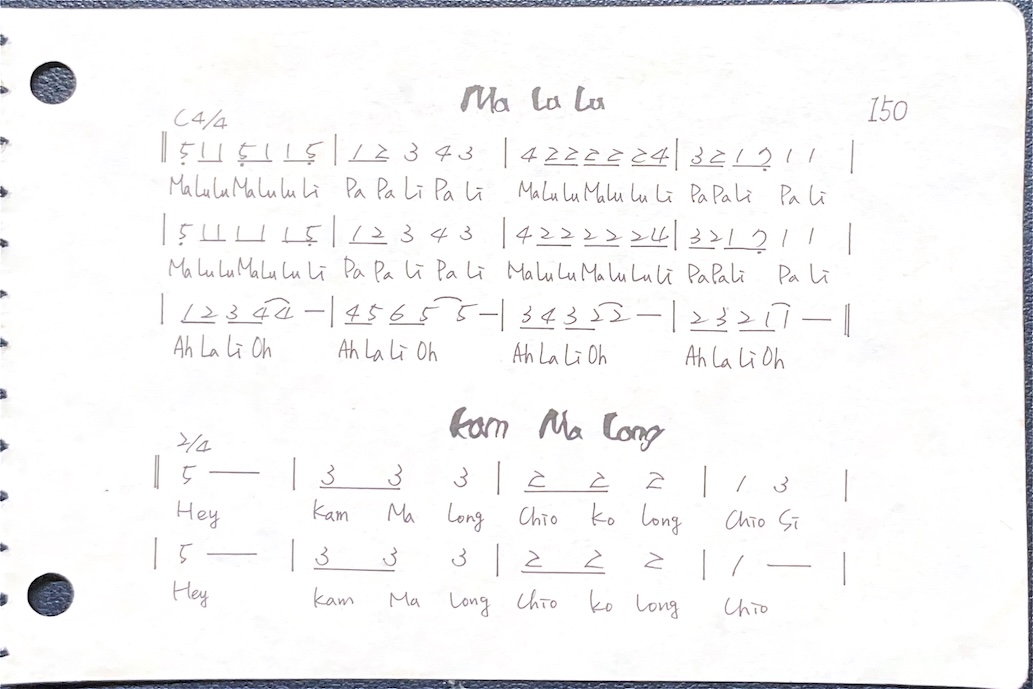 Ma Lu Lu
150
C4/4
‖ 5̣ 1 1 5̣ 1 1 5̣ | 1 2 3 4 3 | 4 2 2 2 2 2 4 | 3 2 1 7̣ 1 1 |
MaLuLuMaLuLuLi Pa Pa Li Pa Li MaLuLuMaLuLuLi PaPaLi Pa Li
| 5̣ 1 1 1 1 1 5̣ | 1 2 3 4 3 | 4 2 2 2 2 2 4 | 3 2 1 7̣ 1 1 |
MaLuLuMaLuLuLi Pa Pa Li Pa Li MaLuLuMaLuLuLi PaPaLi Pa Li
| 1 2 3 4 4 – | 4 5 6 5 5 – | 3 4 3 2 2 – | 2 3 2 1 1 – ‖
Ah La Li Oh Ah La Li Oh Ah La Li Oh Ah La Li Oh
Kam Ma Long
2/4
‖ 5 — | 3 3 3 | 2 2 2 | 1 3 |
Hey Kam Ma Long Chio Ko Long Chio Si
| 5 — | 3 3 3 | 2 2 2 | 1 — |
Hey Kam Ma Long Chio Ko Long Chio